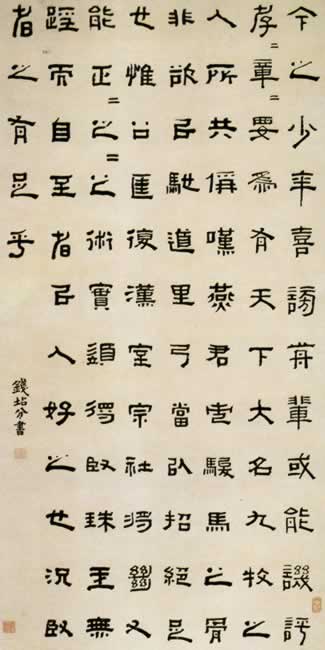 今之少年喜謗歬輩或能譏評
孝〻章〻要為有天下大名九牧之
人所共偁嘆燕君市駿馬之骨
非欲㠯馳道里乃當㠯招絕足
也惟公匡復漢室宗社將絕又
能正〻之〻術實須得臤珠玉無
踁而自至者㠯人好之也況臤
者之有足乎
錢坫分書